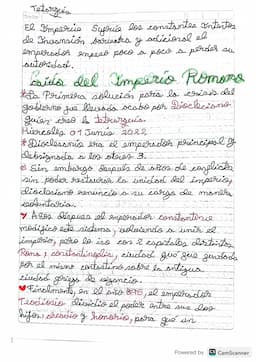 Tetrarquía
El Imperio Sufría los constantes intentos
de Invansión barbara y adicional el
emperador empezo poco a poco a perder su
autoridad.
Caída del Imperio Romano
*La Primera solución para la crisis del
gobierno que llevada acabo por Diocleciano
quien creó la tetrarquía.
Miércoles 01 Junio 2022
*Diocleciano era el emperador principal y
designada a los otros 3.
* Sin embargo después de años de conflicto
sin poder restaurar la unidad del imperio,
dioclesiano renuncio a su cargo de manera
voluntaria.
Años después el emperador constantino
modifico este sistema, volviendo a unir el
imperio, pero lo iso con 2 capitales distintas
Roma y constantinopla, ciudad que fue fundada
por el mismo constantino sobre la antigua
ciudad griega de bizancio.
Finalmente, en el año 395, el emperador
Teodosio dividió el poder entre sus dos
hijos: arcadio y honorio, para que un
Powered by CS CamScanner